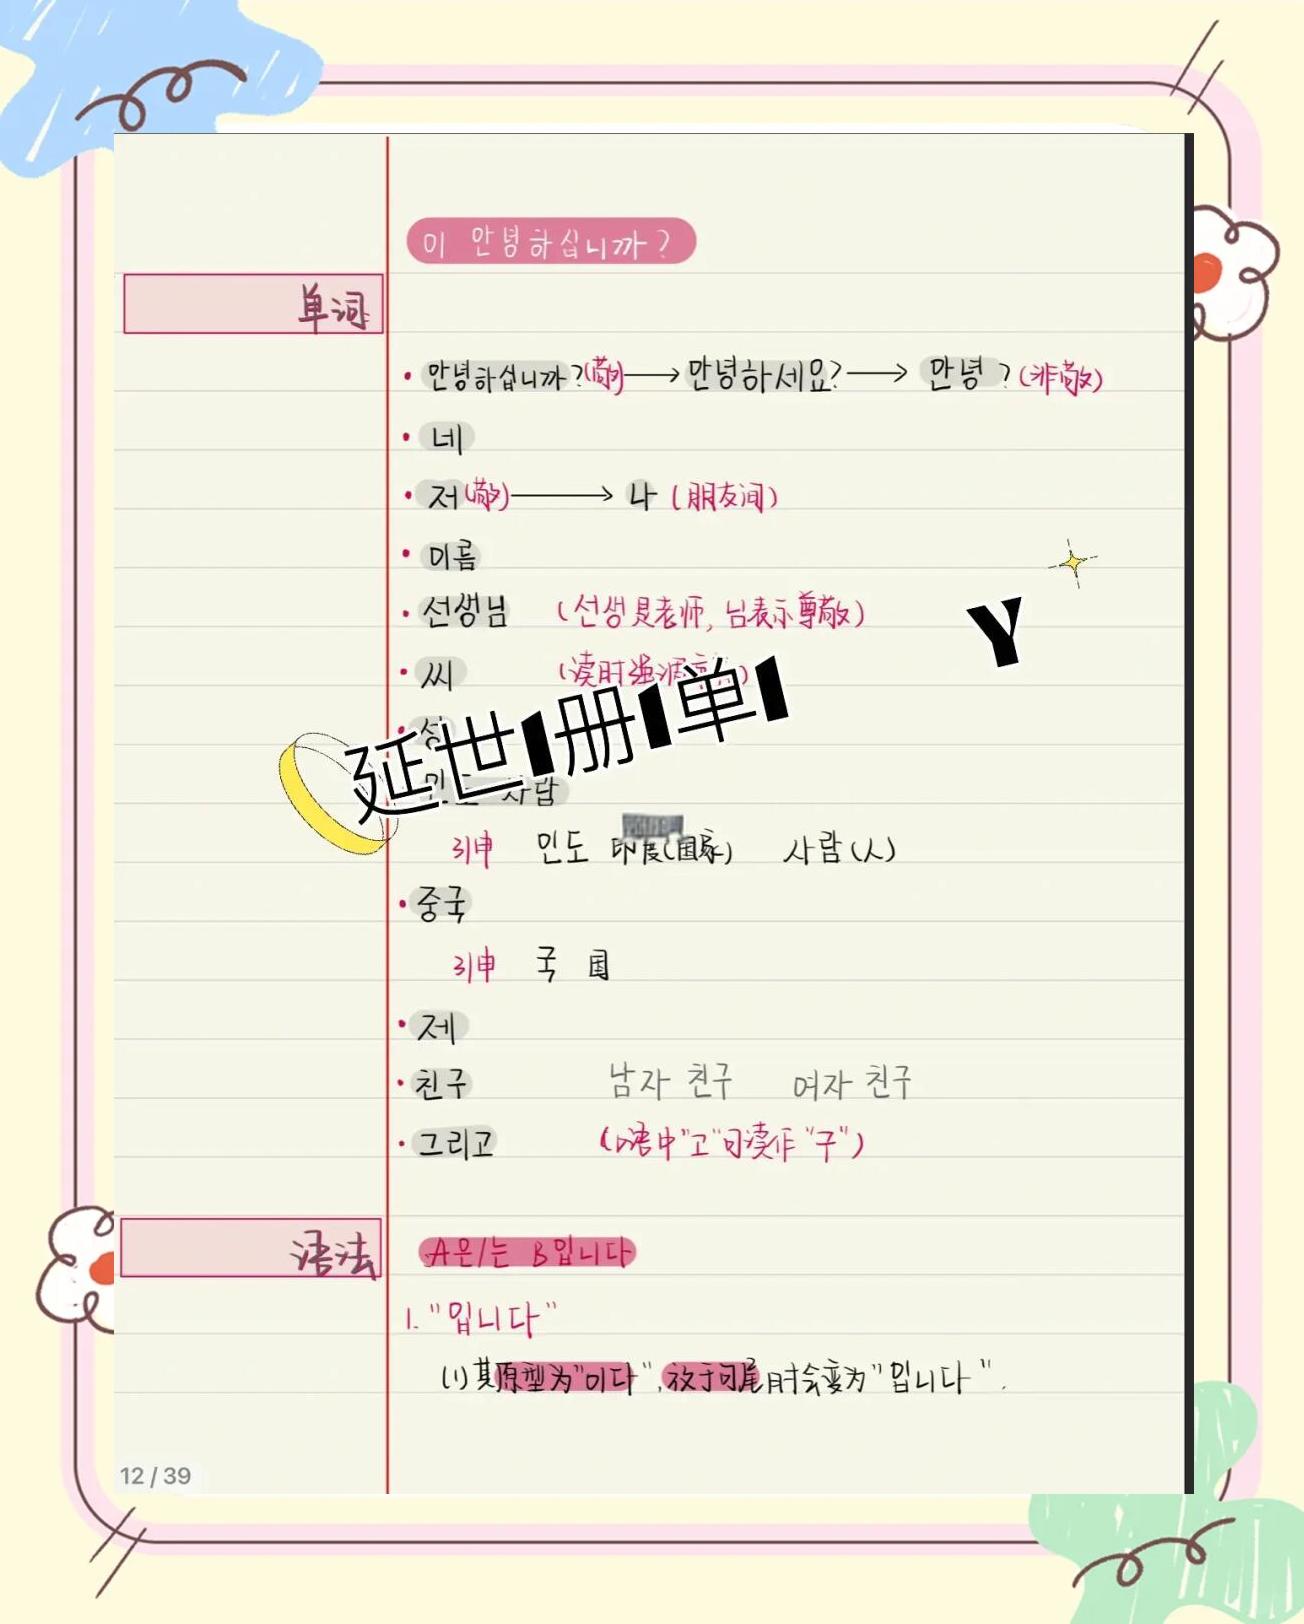 01 안녕하십니까?
单词
• 안녕하십니까?(敬)→안녕하세요?→안녕?(非敬)
• 네
• 저(敬)→나 (朋友间)
• 이름
• 선생님 (선생是老师, 님表示尊敬)
• 씨 (读时强调
Y
延世1册1单1
사람
引申 인도 印度(国家) 사람(人)
• 중국
引申 국 国
• 제
• 친구 남자 친구 여자 친구
• 그리고 (口语中"고"可读作"구")
语法
A은/는 B입니다
1. "입니다"
(1) 其原型为"이다",放于句尾时会变为"입니다".
12 / 39